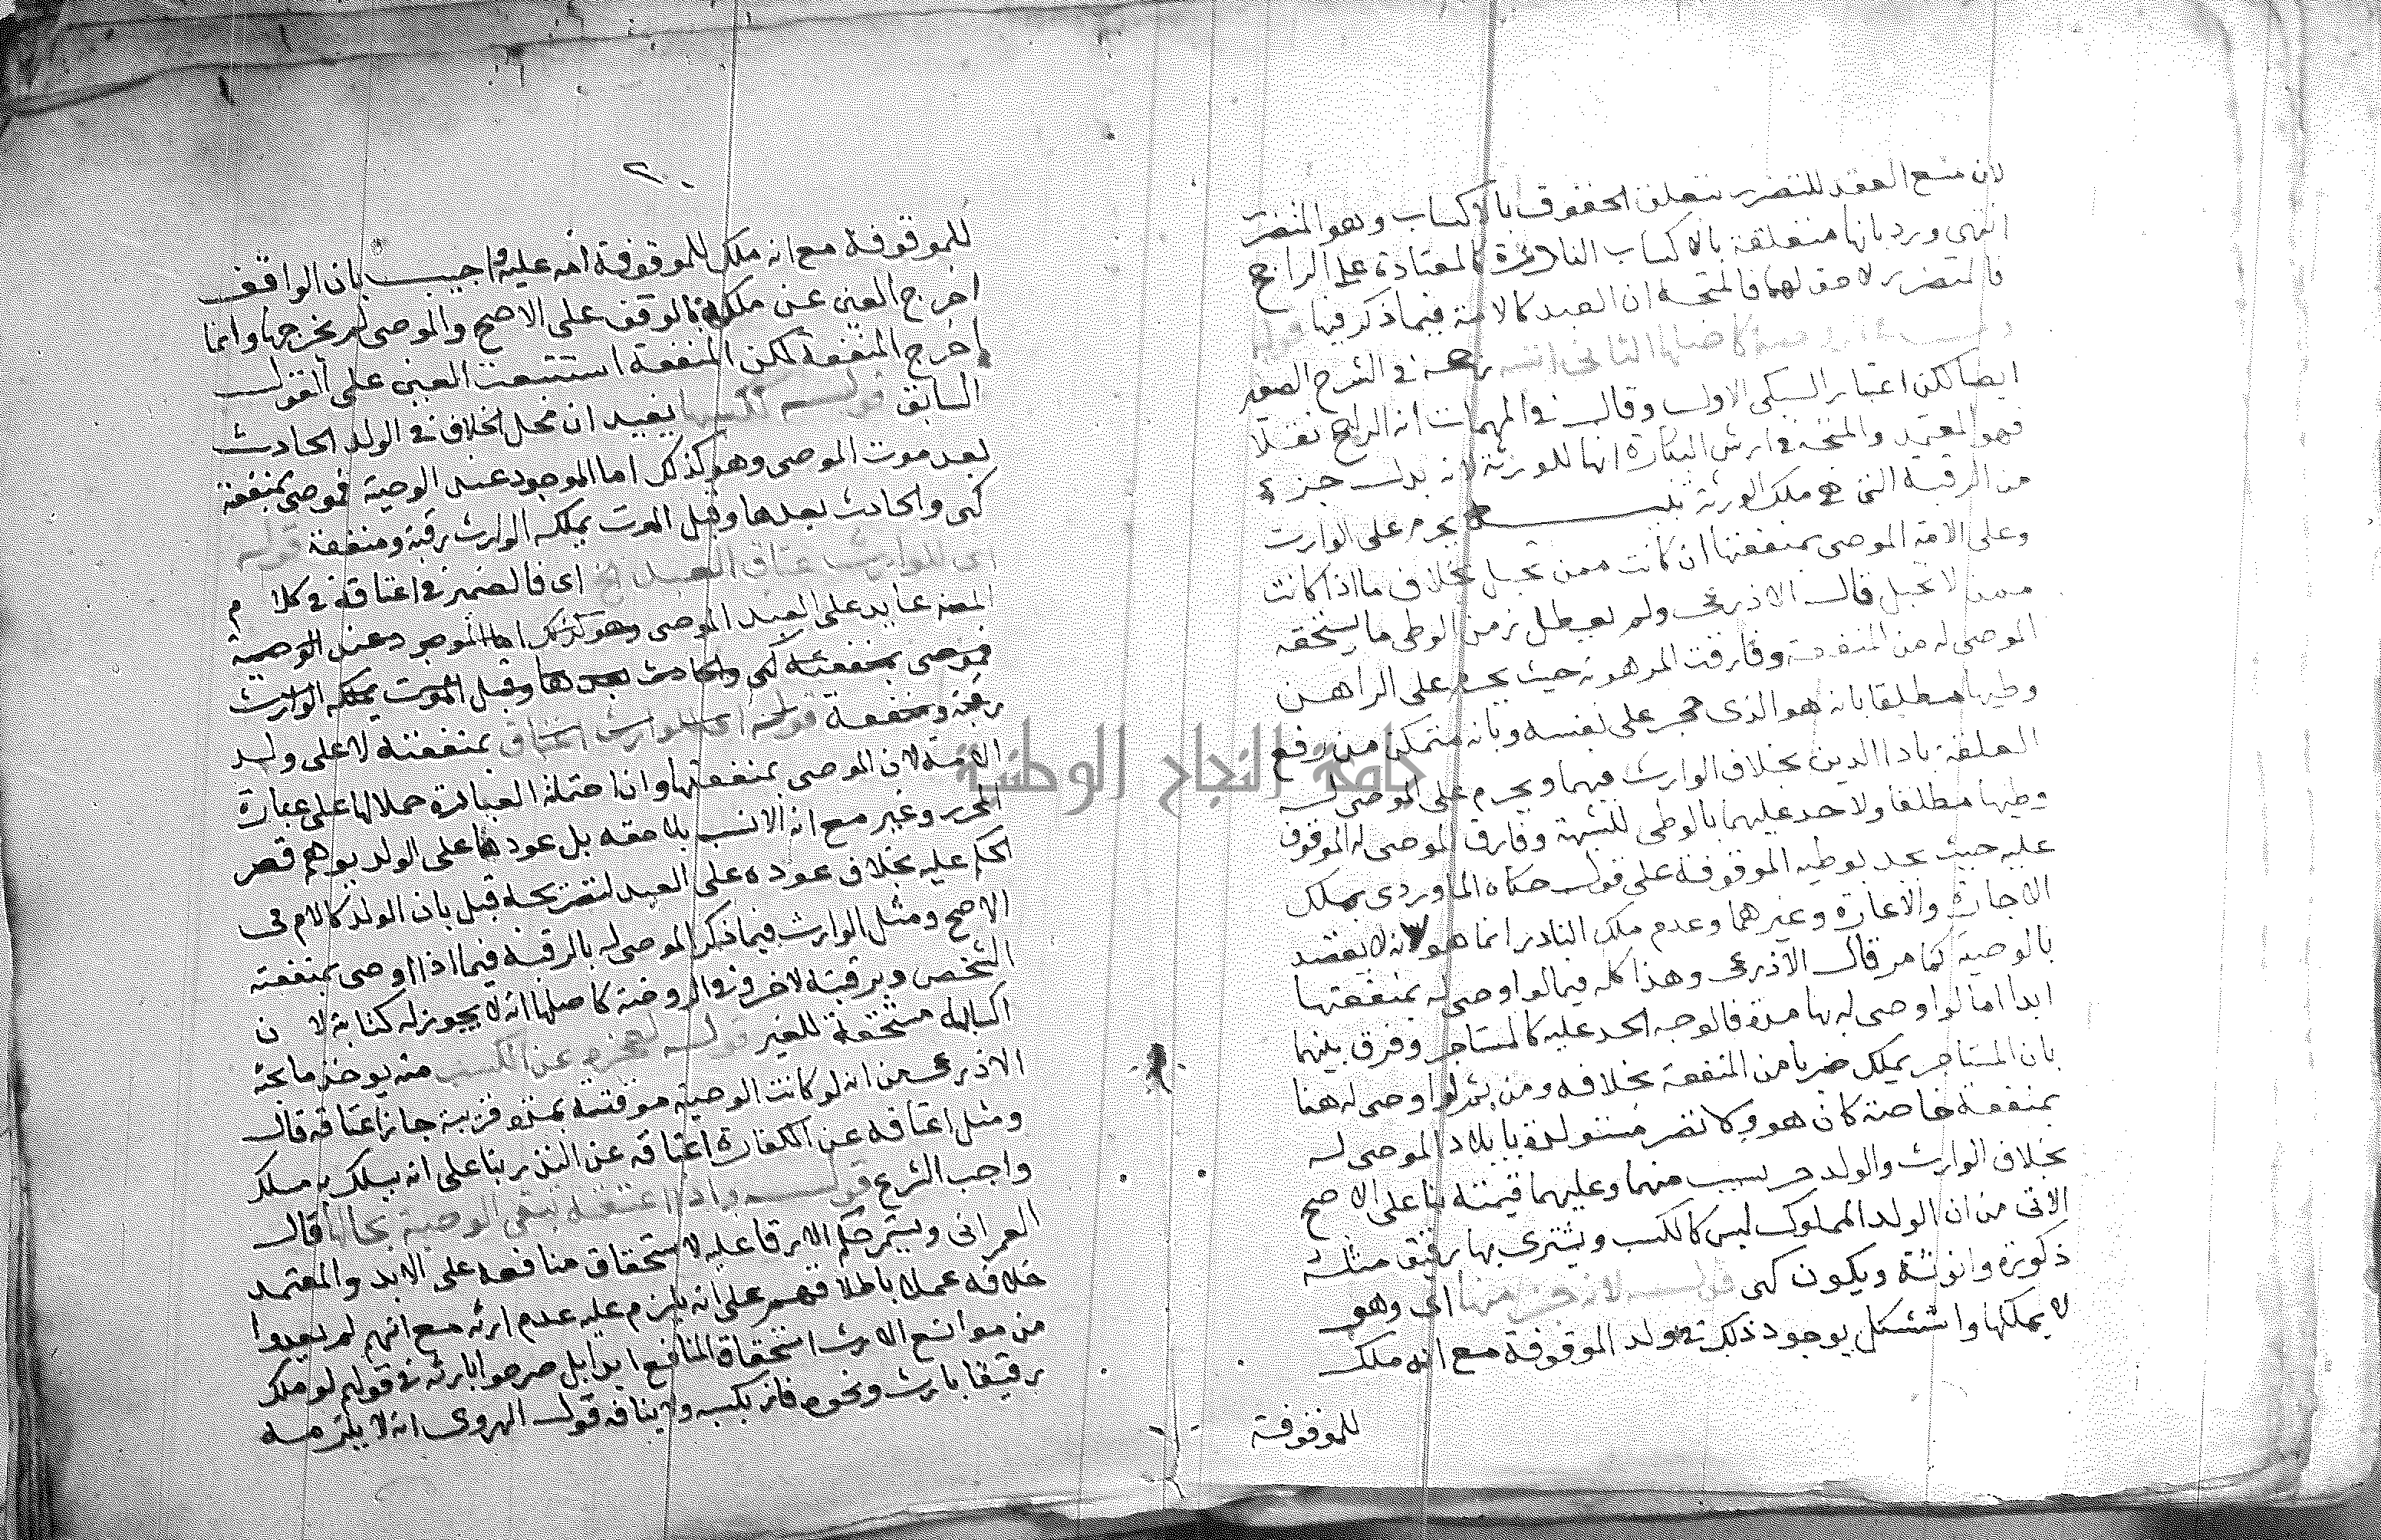 لان منع العقد للتضرر بتعلق الحقوق بالاكساب وهو المتضرر
انتهى ورد بانها متعلقة بالاكساب النادرة كالمعتادة على الراجح
فالتضرر لاحق لها فالمتجه ان العبد كالامة فيما ذكر فيها قوله
كاصلها الثانى انتهى رجحه فى الشرح الصغير
ايضا لكن اعتبار السبكى الاول وقال فى المهمات انه الراجح نقلا
فهو المعتمد والمتجه فى ارش البكارة انها للورثة لانه بدل جزء
من الرقبة التى هى ملك الورثة تنبيه يحرم على الوارث
وعلى الامة الموصى بمنفعتها ان كانت ممن تحبل بخلاف ما اذا كانت
ممن لا تحبل قال الاذرعى ولم يعطل زمن الوطى ما يستحقه
الموصى له من المنفعة وفارقت المرهونة حيث يحرم على الراهن
وطيها مطلقا بانه هو الذى حجر على نفسه وبانه متمكن من رفع
العلقة باداالدين بخلاف الوارث فيهما ويحرم على الموصى له
وطيها مطلقا ولا حد عليهما بالوطى للشبهة وفارق الموصى له الموقوف
عليه حيث يحد بوطيه الموقوفة على قول حكاه الماوردى بملك
الاجارة والاعارة وغيرهما وعدم ملك النادر انما هو لانه لا يقصد
بالوصية كما مر قال الاذرعى وهذا كله فيما لو اوصى له بمنفعتها
ابدا اما لو اوصى له بها مدة فالوجه الحد عليه كالمستاجر وفرق بينهما
بان المستاجر يملك ضربا من المنفعة بخلافه ومن ثم لو اوصى له هنا
بمنفعة خاصة كان هو ولا تصر مستولدة بايلاد الموصى له
بخلاف الوارث والولد حر نسيب منهما وعليهما قيمته بنا على الاصح
الاتى من ان الولد المملوك ليس كالكسب ويشترى بها رقيق مثله
ذكورة وانوثة ويكون كهى قوله لانه جزء منها اى وهو
لا يملكها واستشكل بوجود ذلك فى ولد الموقوفة مع انه ملك
للموقوفة
للموقوفة مع انه ملك للموقوفة امه عليه واجيب بان الواقف
اخرج العين عن ملكه بالوقف على الاصح والموصى لم يخرجها وانما
اخرج المنفعة لكن المنفعة استتبعت العين على القول
السابق قوله لكسبها يفيد ان محل الخلاف فى الولد الحادث
بعد موت الموصى وهو كذلك اما الموجود عند الوصية فموصى بمنفعته
كهى والحادث بعدها وقبل الموت يملكه الوارث رقبة ومنفعة قوله
اى للوارث عتاق العبد الخ اى فالضمير فى اعتاقه فى كلام
المصنف عايد على العبد الموصى وهو كذلك اما الموجود عند الوصية
فموصى بمنفعته كهى والحادث بعدها وقبل الموت يملكه الوارث
رقبة ومنفعة قوله اى للوارث اعتاق بمنفعته لا على ولد
الامة لان الموصى بمنفعتها وان احتملته العبارة حملا لها على عبارة
المحرر وغير مع انه الانسب بلاحقه بل عودها على الولد يوهم قصر
الحكم عليه بخلاف عوده على العبد لتصريحه قبل بان الولد كالام فى
الاصح ومثل الوارث فيما ذكر الموصى له بالرقبة فيما اذا اوصى بمنفعته
لشخص وبرقبته لاخر وفى الروضة كاصلها انه لا يجوز له كتابة لان
اكسابه مستحقة للغير قوله لعجزه عن الكسب منه يوخذ ما بحثه
الاذرعى من انه لو كانت الوصية موقتة بمدة قريبة جاز اعتاقه قال
ومثل اعتاقه عن الكفارة اعتاقه عن النذر بنا على انه يسلك به مسلك
واجب الشرع قوله واذا اعتقه تبقى الوصية بحالها قال
العمرانى ويستمر حكم الارقا عليه لاستحقاق منافعه على الابد والمعتمد
خلافه عملا باطلاقهم على انه يلزم عليه عدم ارثه مع انهم لم يعدوا
من موانع الارث استحقاق المنافع ابدا بل صرحوا بارثه فى قولهم لو ملك
رقيقا بارث ونحوه فانه بكسبه ولا ينافه قول الهروى انه لا يلتزمه
جامعة النجاح الوطنية